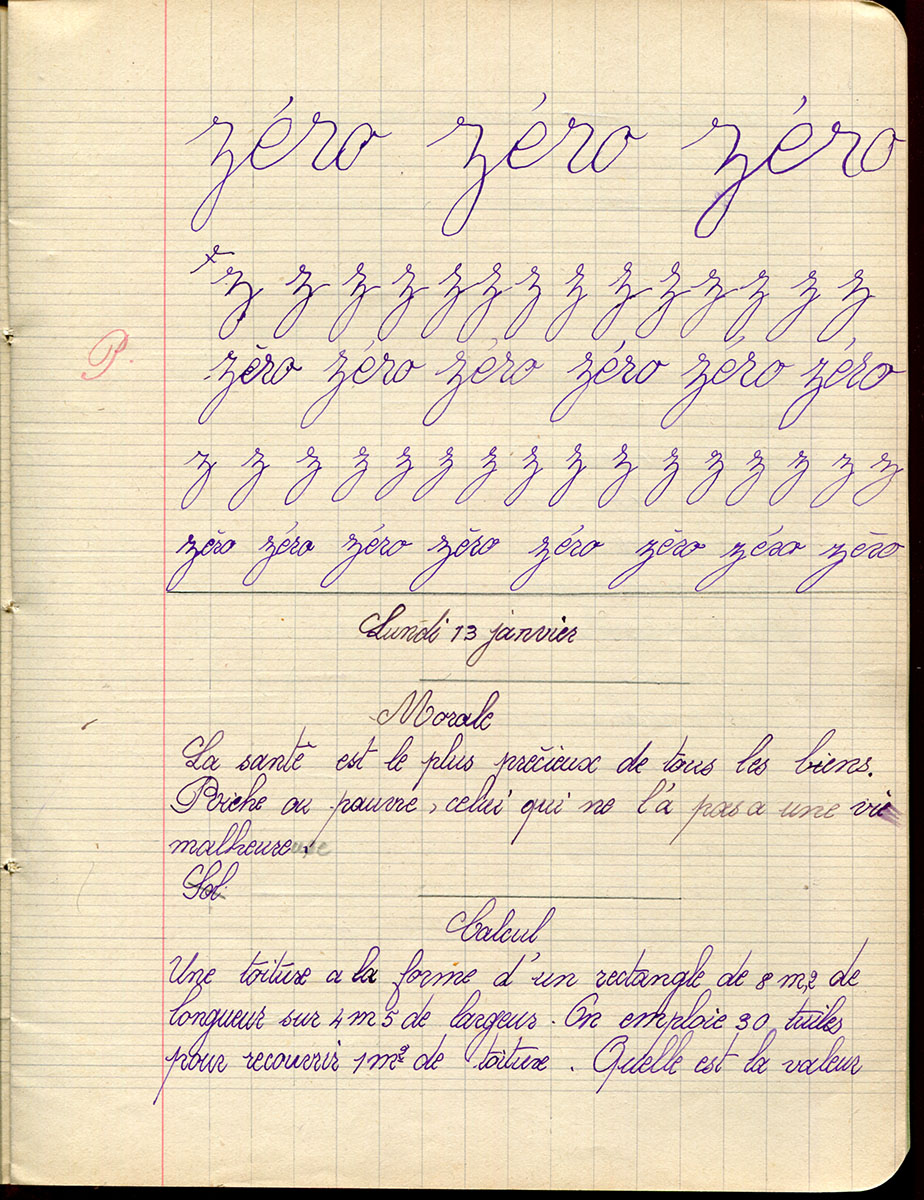 zéro zéro zéro
z z z z z z z z z z z z z z
P.
zéro zéro zéro zéro zéro zéro
z z z z z z z z z z z z z z z z
zéro zéro zéro zéro zéro zéro zéro zéro
Lundi 13 janvier
Morale
La santé est le plus précieux de tous les biens.
Riche ou pauvre, celui qui ne l'a pas a une vie
malheureuse
Sol
Calcul
Une toiture a la forme d'un rectangle de 8 m,2 de
longueur sur 4 m 5 de largeur. On emploie 30 tuiles
pour recouvrir 1 m² de toiture. Quelle est la valeur